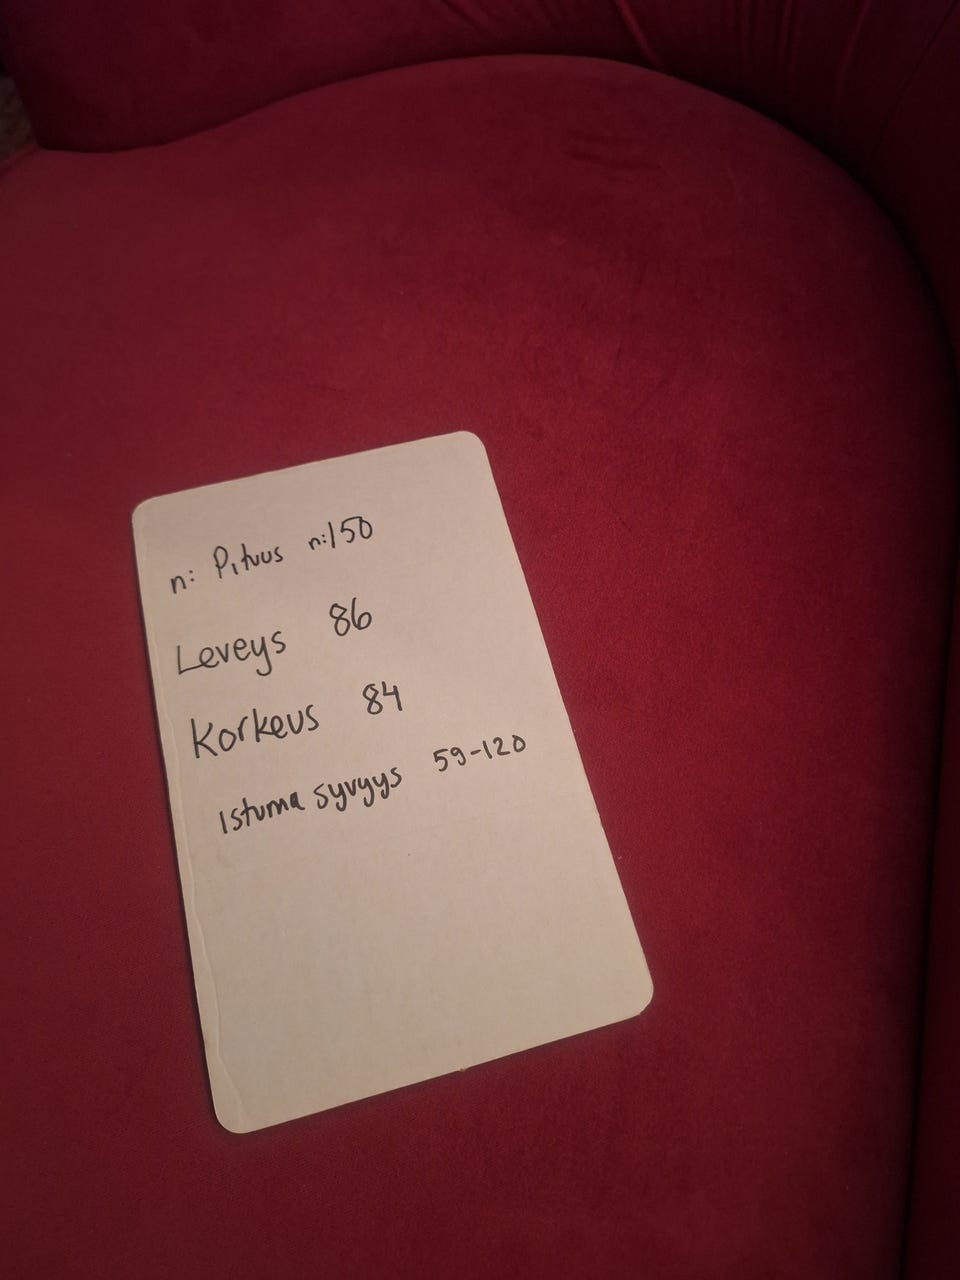 n: Pituus n:150
Leveys 86
Korkeus 84
Istuma syvyys 59-120